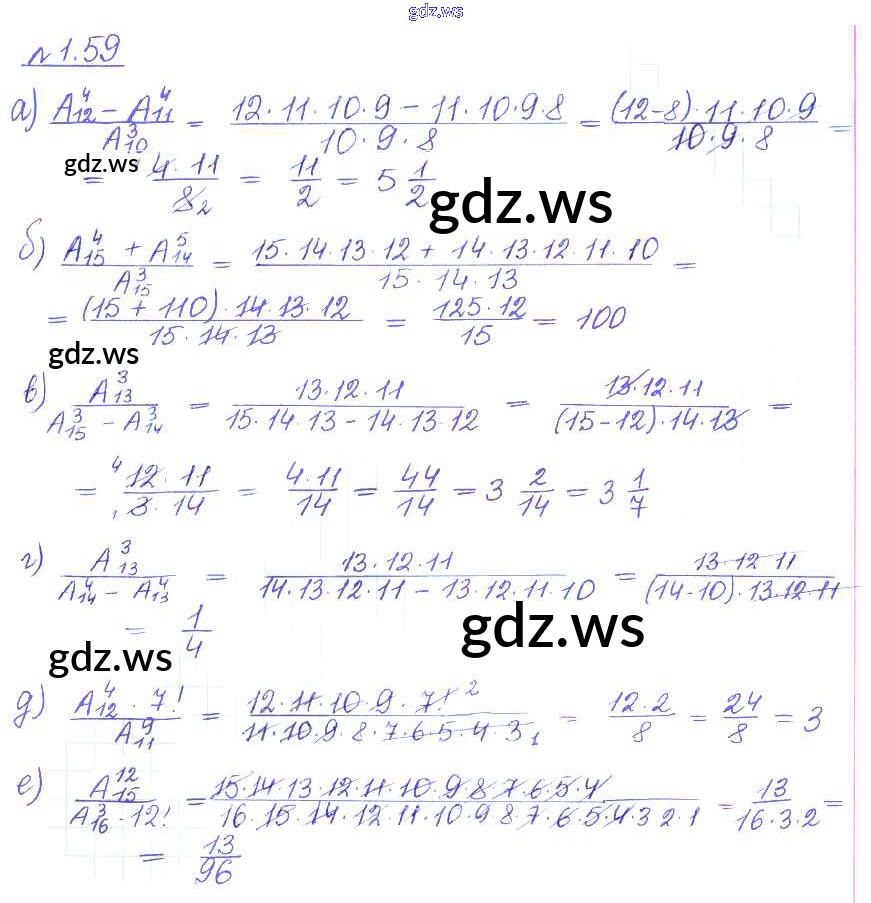 gdz.ws
№1.59
а) (A⁴₁₂ − A⁴₁₁)/A³₁₀ = (12·11·10·9 − 11·10·9·8)/(10·9·8) = ((12−8)·11·10·9)/(10·9·8) =
gdz.ws
= (4·11)/(8₂) = 11/2 = 5 1/2
gdz.ws
б) (A⁴₁₅ + A⁵₁₄)/A³₁₅ = (15·14·13·12 + 14·13·12·11·10)/(15·14·13) =
= ((15 + 110)·14·13·12)/(15·14·13) = (125·12)/15 = 100
gdz.ws
в) A³₁₃/(A³₁₅ − A³₁₄) = (13·12·11)/(15·14·13 − 14·13·12) = (13·12·11)/((15−12)·14·13) =
= (⁴12·11)/(₁3·14) = (4·11)/14 = 44/14 = 3 2/14 = 3 1/7
г) A³₁₃/(A⁴₁₄ − A⁴₁₃) = (13·12·11)/(14·13·12·11 − 13·12·11·10) = (13·12·11)/((14−10)·13·12·11)
= 1/4
gdz.ws
gdz.ws
д) (A⁴₁₂·7!)/A⁹₁₁ = (12·11·10·9·7!²)/(11·10·9·8·7·6·5·4·3₁) = (12·2)/8 = 24/8 = 3
е) A¹²₁₅/(A³₁₆·12!) = (15·14·13·12·11·10·9·8·7·6·5·4)/(16·15·14·12·11·10·9·8·7·6·5·4·3·2·1) = 13/(16·3·2) =
= 13/96